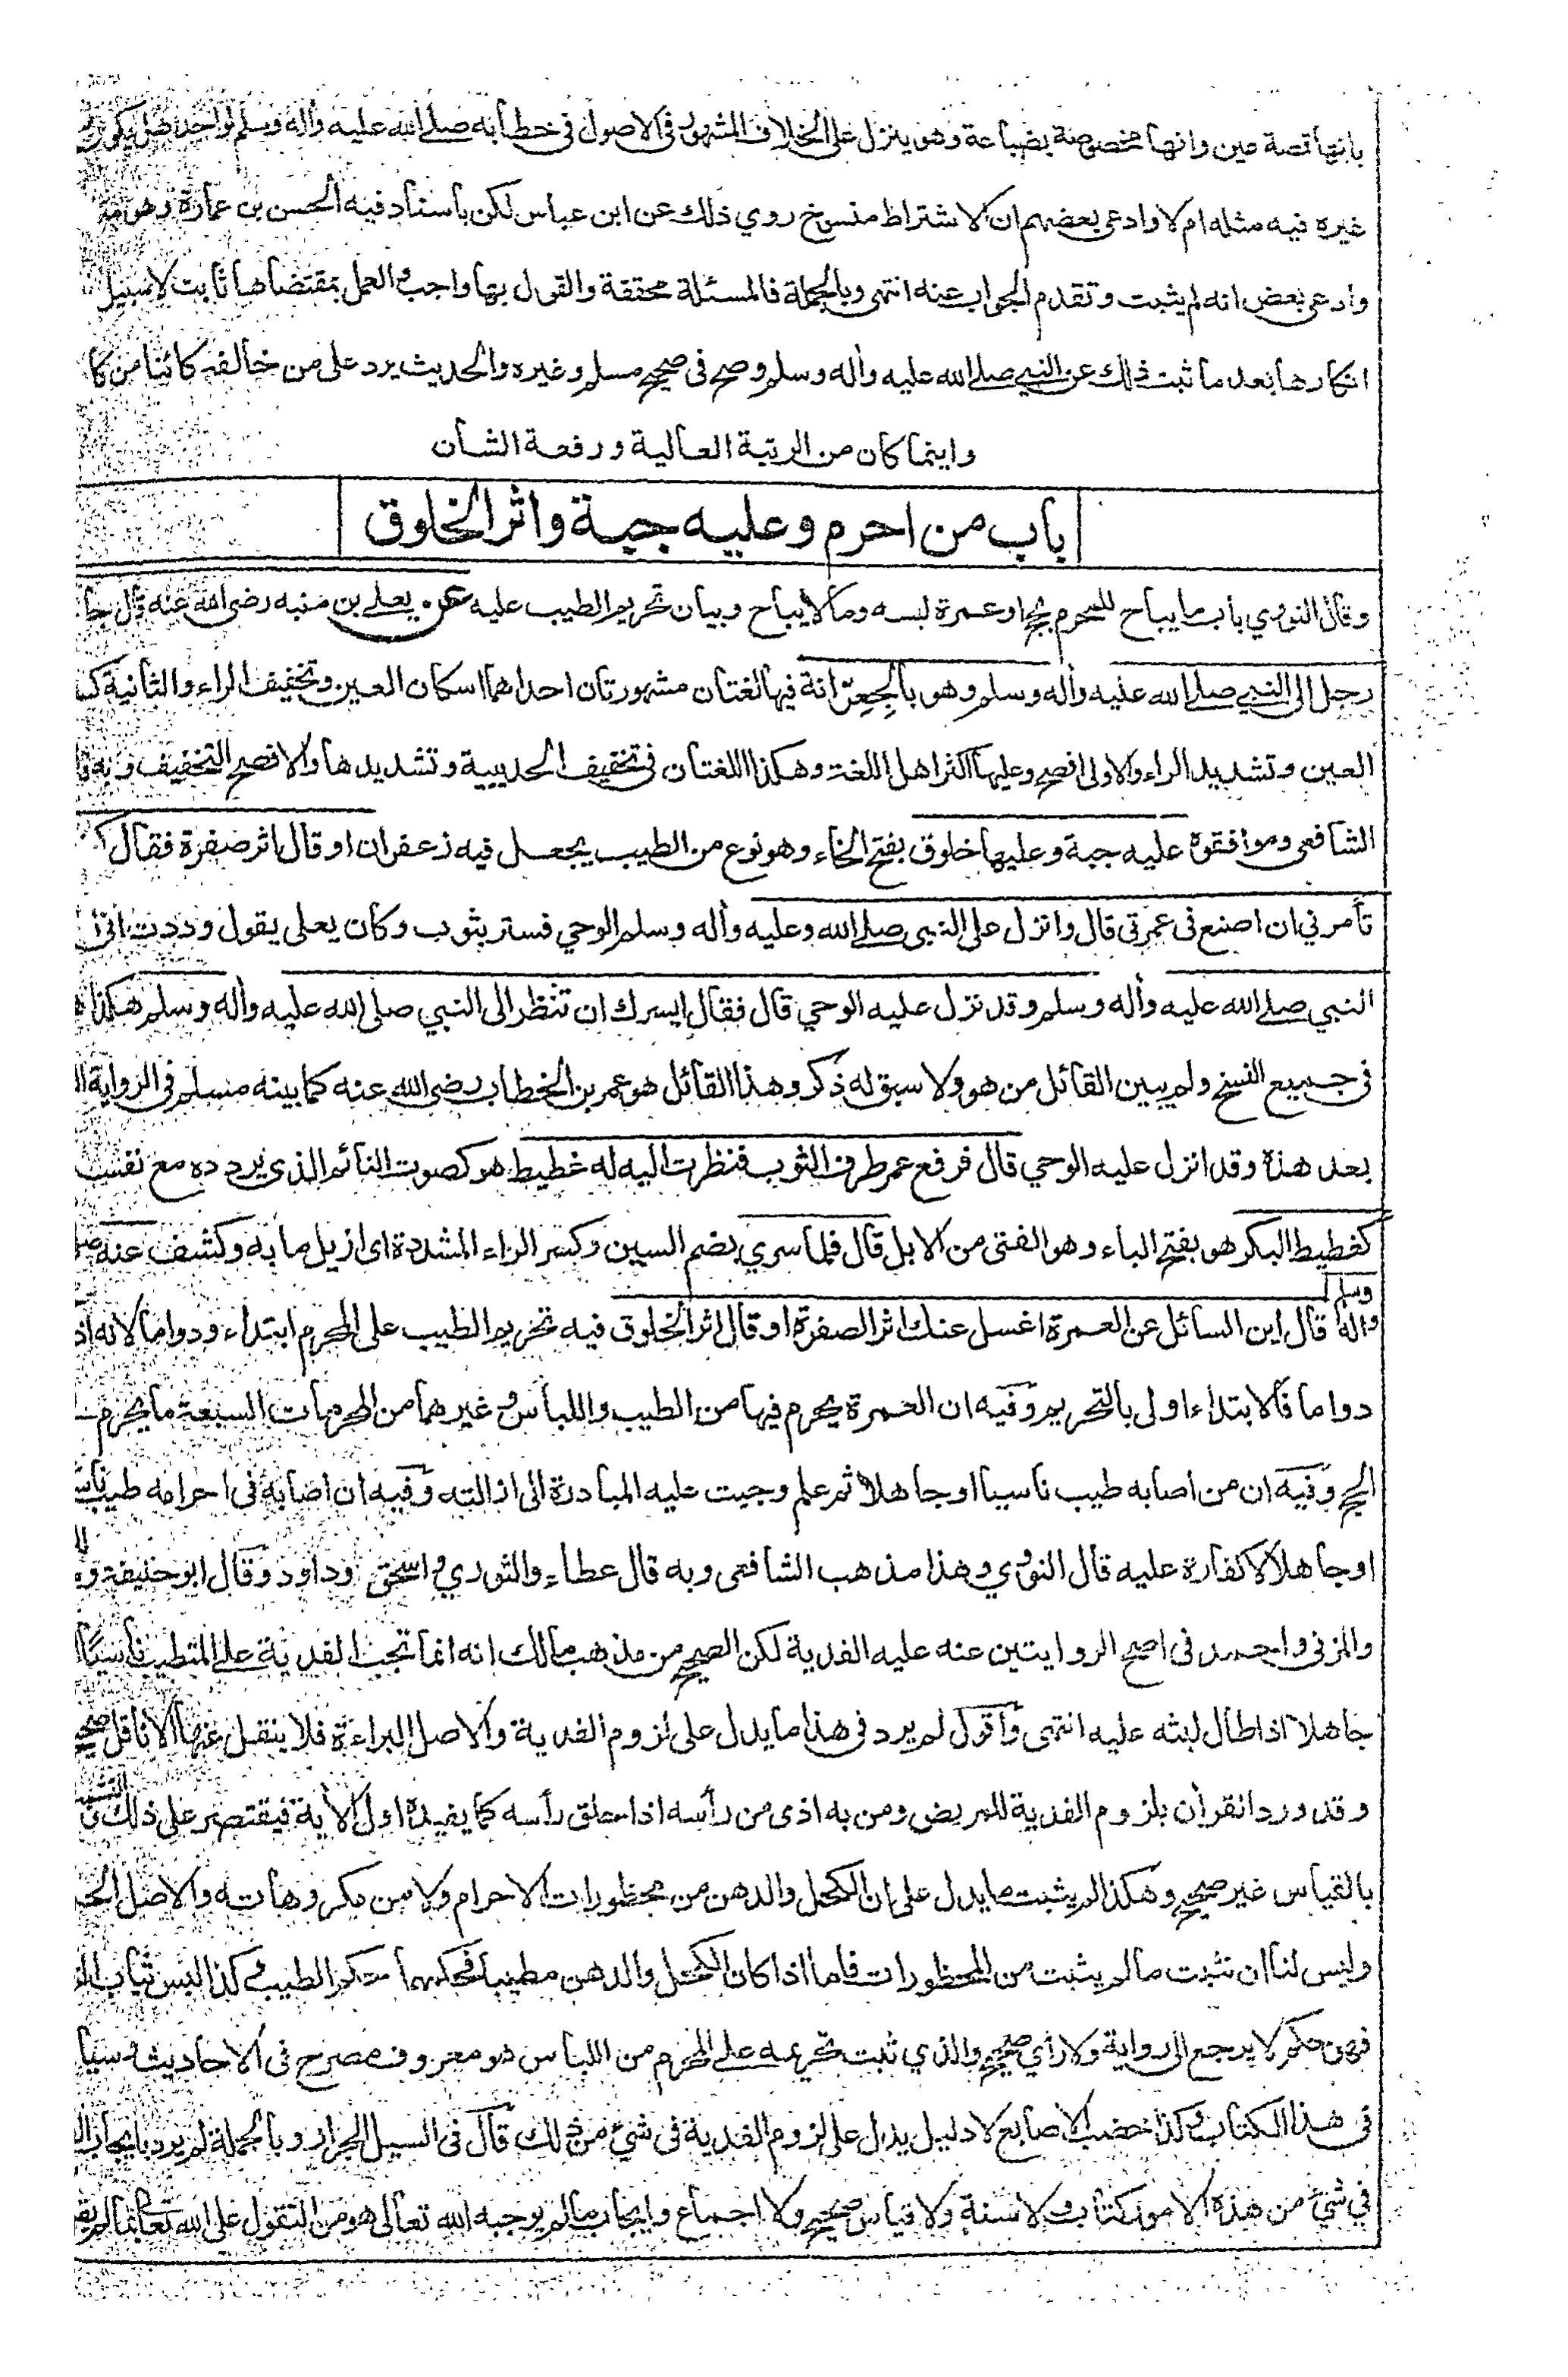 بانها قصة عين وانها مخصوصة بضباعة وهو يتنزل على الخلاف المشهور فى الاصول فى خطابه صلى الله عليه واله وسلم لواحد هل يكون
غيره فيه مثله ام لا وادعى بعضهم ان الاشتراط منسوخ روي ذلك عن ابن عباس لكن باسناد فيه الحسن بن عمارة وهو
وادعى بعض انه لم يثبت وتقدم الجواب عنه انتهى وبالجملة فالمسئلة محققة والقول بها واجب والعمل بمقتضاها ثابت لا سبيل
انكارها بعد ما ثبت ذلك عن النبي صلى الله عليه واله وسلم وصح فى صحيح مسلم وغيره والحديث يرد على من خالفه كائنا من كا
واينما كان من الرتبة العالية ورفعة الشان
باب من احرم وعليه جبة واثر الخلوق
وقال النووي باب ما يباح للمحرم بحج او عمرة لبسه وما لا يباح وبيان تحريم الطيب عليه عن يعلى بن منبه رضى الله عنه قال جا
رجل الى النبي صلى الله عليه واله وسلم وهو بالجِعِرّانة فيها لغتان مشهورتان احداهما اسكان العين وتخفيف الراء والثانية كس
العين وتشديد الراء والاولى افصح وعليها اكثر اهل اللغة وهكذا اللغتان فى تخفيف الحديبية وتشديدها والافصح التخفيف وبه قا
الشافعى وموافقوه عليه جبة وعليها خلوق بفتح الخاء وهو نوع من الطيب يجعل فيه زعفران او قال اثر صفرة فقال
تأمرني ان اصنع فى عمرتي قال وانزل على النبي صلى الله وعليه واله وسلم الوحي فستر بثوب وكان يعلى يقول وددت انى
النبي صلى الله عليه واله وسلم وقد نزل عليه الوحي قال فقال ايسرك ان تنظر الى النبي صلى الله عليه واله وسلم هكذا
فى جميع النسخ ولم يبين القائل من هو ولا سبق له ذكر وهذا القائل هو عمر بن الخطاب رضى الله عنه كما بينه مسلم فى الرواية
بعد هذه وقد انزل عليه الوحي قال فرفع عمر طرف الثوب فنظرت اليه له غطيط هو كصوت النائم الذي يردده مع نفسه
كغطيط البكر هو بفتح الباء وهو الفتى من الابل قال فلما سري بضم السين وكسر الراء المشددة اى ازيل ما به وكشف عنه
واله وسلم قال اين السائل عن العمرة اغسل عنك اثر الصفرة او قال اثر الخلوق فيه تحريم الطيب على المحرم ابتداء ودواما لانه اذ
دواما فالابتداء اولى بالتحريم وفيه ان العمرة يحرم فيها من الطيب واللباس وغيرهما من المحرمات السبعة ما يحرم
الحج وفيه ان من اصابه طيب ناسيا او جاهلا ثم علم وجبت عليه المبادرة الى ازالته وفيه ان اصابه فى احرامه طيب
اوجاهلا لا كفارة عليه قال النووي وهذا مذهب الشافعى وبه قال عطاء والثوري واسحق وداود وقال ابو حنيفة
والمزنى واحمد فى اصح الروايتين عنه عليه الفدية لكن الصحيح من مذهب مالك انه انما تجب الفدية على المتطيب ناسيا
جاهلا اذا طال لبثه عليه انتهى وأقول لم يرد فى هذا ما يدل على لزوم الفدية والاصل البراءة فلا ينقل عنها الا ناقل صحيح
وقد ورد القرأن بلزوم الفدية للمريض ومن به اذى من رأسه اذا حلق رأسه كما يفيده اول الأية فيقتصر على ذلك
بالقياس غير صحيح وهكذا لم يثبت ما يدل على ان الكحل والدهن من محظورات الاحرام ولا من مكروهاته والاصل
وليس لنا ان نثبت ما لم يثبت من المحظورات فاما اذا كان الكحل والدهن مطيبا فحكمهما حكم الطيب وكذا لبس ثياب
فهن حكم لا يرجع الى رواية ولا رأي صحيح والذي ثبت تحريمه على المحرم من اللباس هو معروف مصرح فى الاحاديث وسيا
فى هذا الكتاب وكذا خضب الاصابع لا دليل يدل على لزوم الفدية فى شئ من ذلك قال فى السيل الجرار وبالجملة لم يرد بايجاب
في شئ من هذه الامور كتاب ولا سنة ولا قياس صحيح ولا اجماع وايجاب ما لم يوجبه الله تعالى هو من التقول على الله تعالى